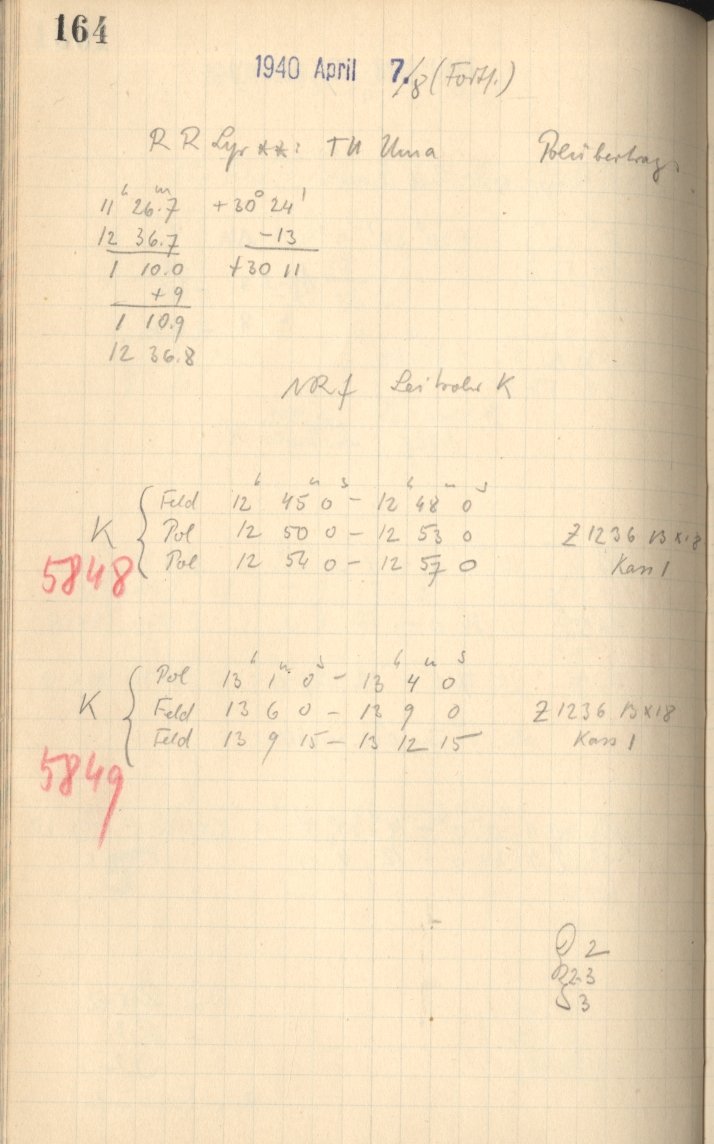 164
1940 April 7./8 (Forts.)
RR Lyr **: TU Uma Polübertrag.
11ʰ 26.7ᵐ +30° 24'
12 36.7 -13
1 10.0 +30 11
+9
1 10.9
12 36.8
NRf Leitrohr K
K { Feld 12ʰ 45ᵐ 0ˢ - 12ʰ 48ᵐ 0ˢ
Pol 12 50 0 - 12 53 0 Z 1236 13x18
5848 Pol 12 54 0 - 12 57 0 Kass 1
K { Pol 13ʰ 1ᵐ 0ˢ - 13ʰ 4ᵐ 0ˢ
Feld 13 6 0 - 13 9 0 Z 1236 13x18
Feld 13 9 15 - 13 12 15 Kass 1
5849
2
2-3
3